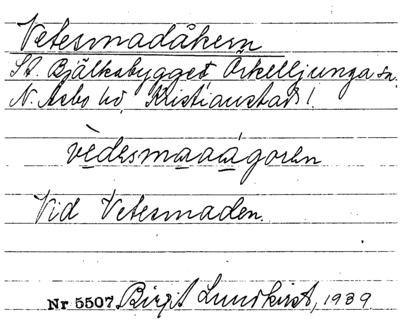 Vetesmadåkern
St. Bjälkabygget, Örkelljunga sn.
N. Åsbo hd, Kristianstads l.
vèdesmaaágoren
Vid Vetesmaden.
Nr 5507. Birgit Lundkvist, 1939